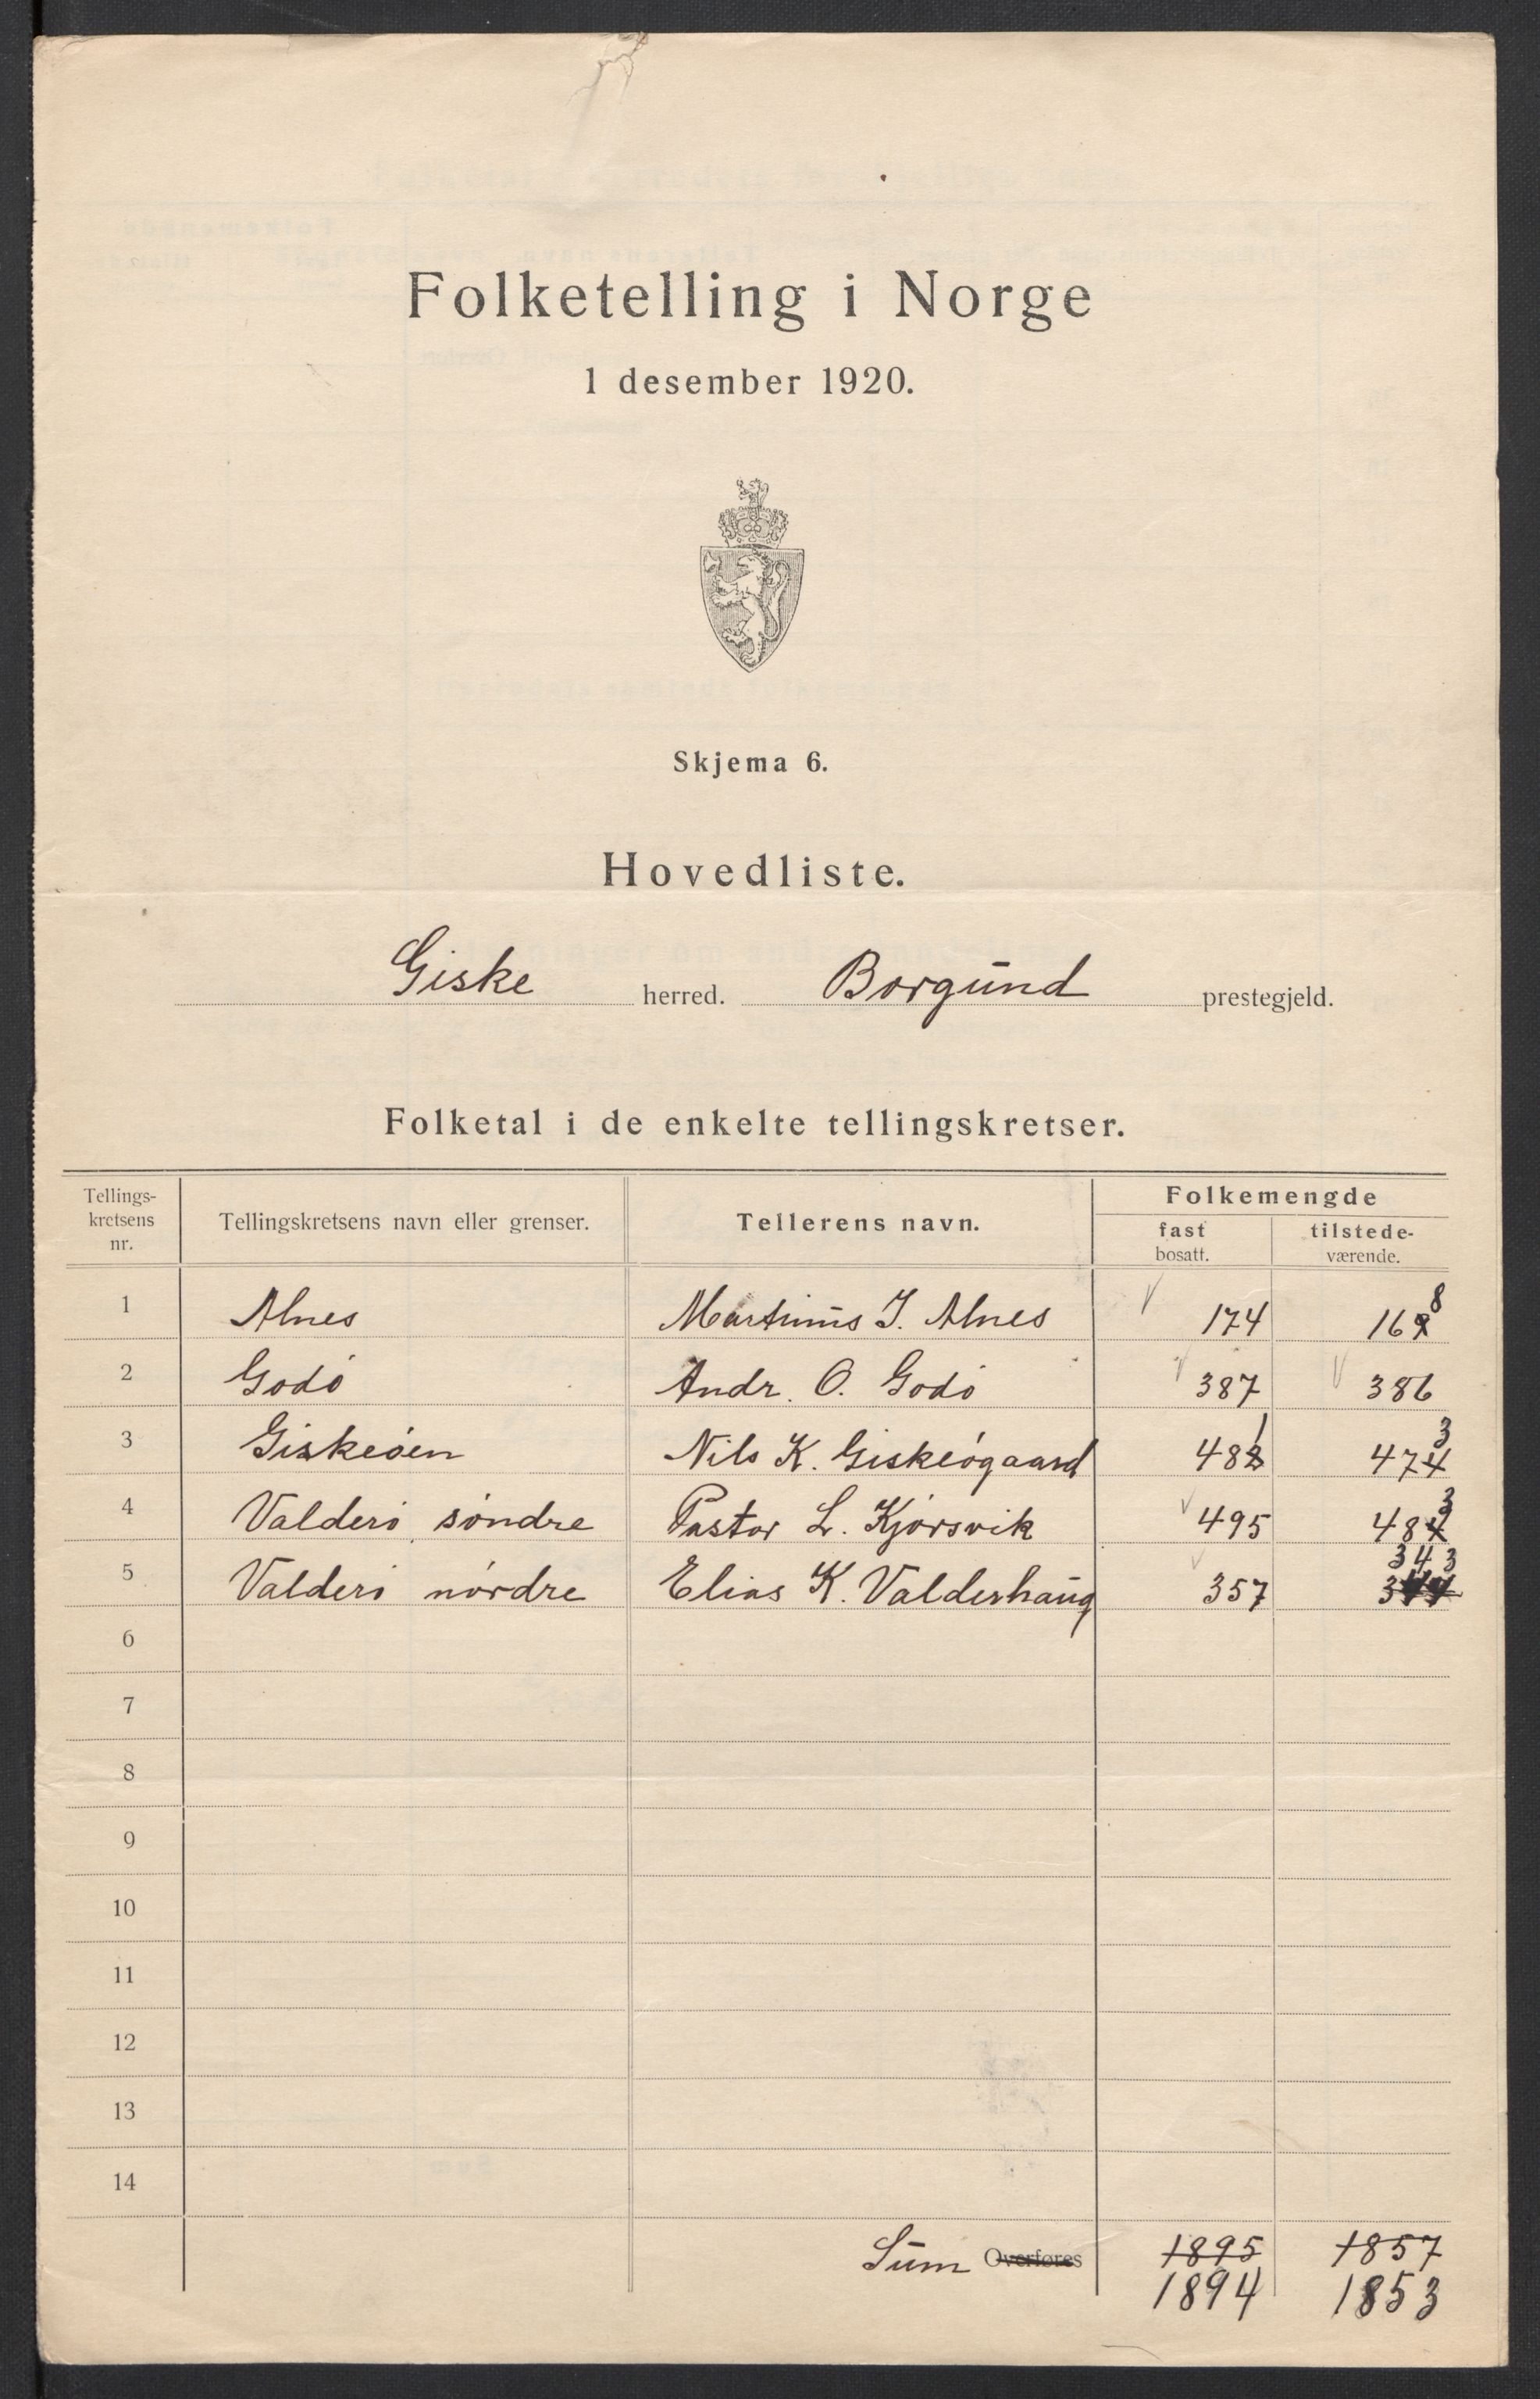 Folketelling i Norge
1 desember 1920.
Skjema 6.
Hovedliste.
Giske herred. Borgund prestegjeld.
Folketal i de enkelte tellingskretser.
Tellings-
kretsens
nr.
Tellingskretsens navn eller grenser.
Tellerens navn.
Folkemengde
fast
bosatt.
tilstede-
værende.
8
1 Alnes Martinus J. Alnes 174 169
2 Godø Andr. O. Godø 387 386
1 3
3 Giskeøen Nils K. Giskeøgaard 482 474
3
4 Valderø søndre Pastor L. Kjørsvik 495 484
343
5 Valderø nordre Elias K. Valderhaug 357
6
7
8
9
10
11
12
13
14
Sum Overføres 1895 1857
1894 1853